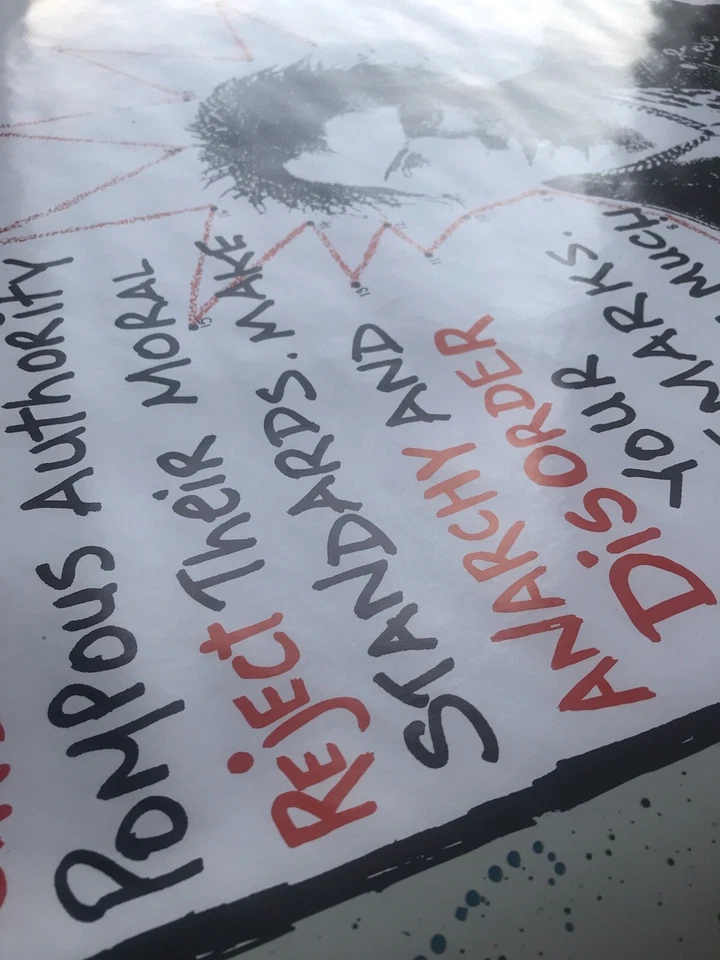 POMPOUS AUTHORITY
REJECT THEIR MORAL
STANDARDS. MAKE
ANARCHY AND
DISORDER YOUR
MARKS.
MUCH